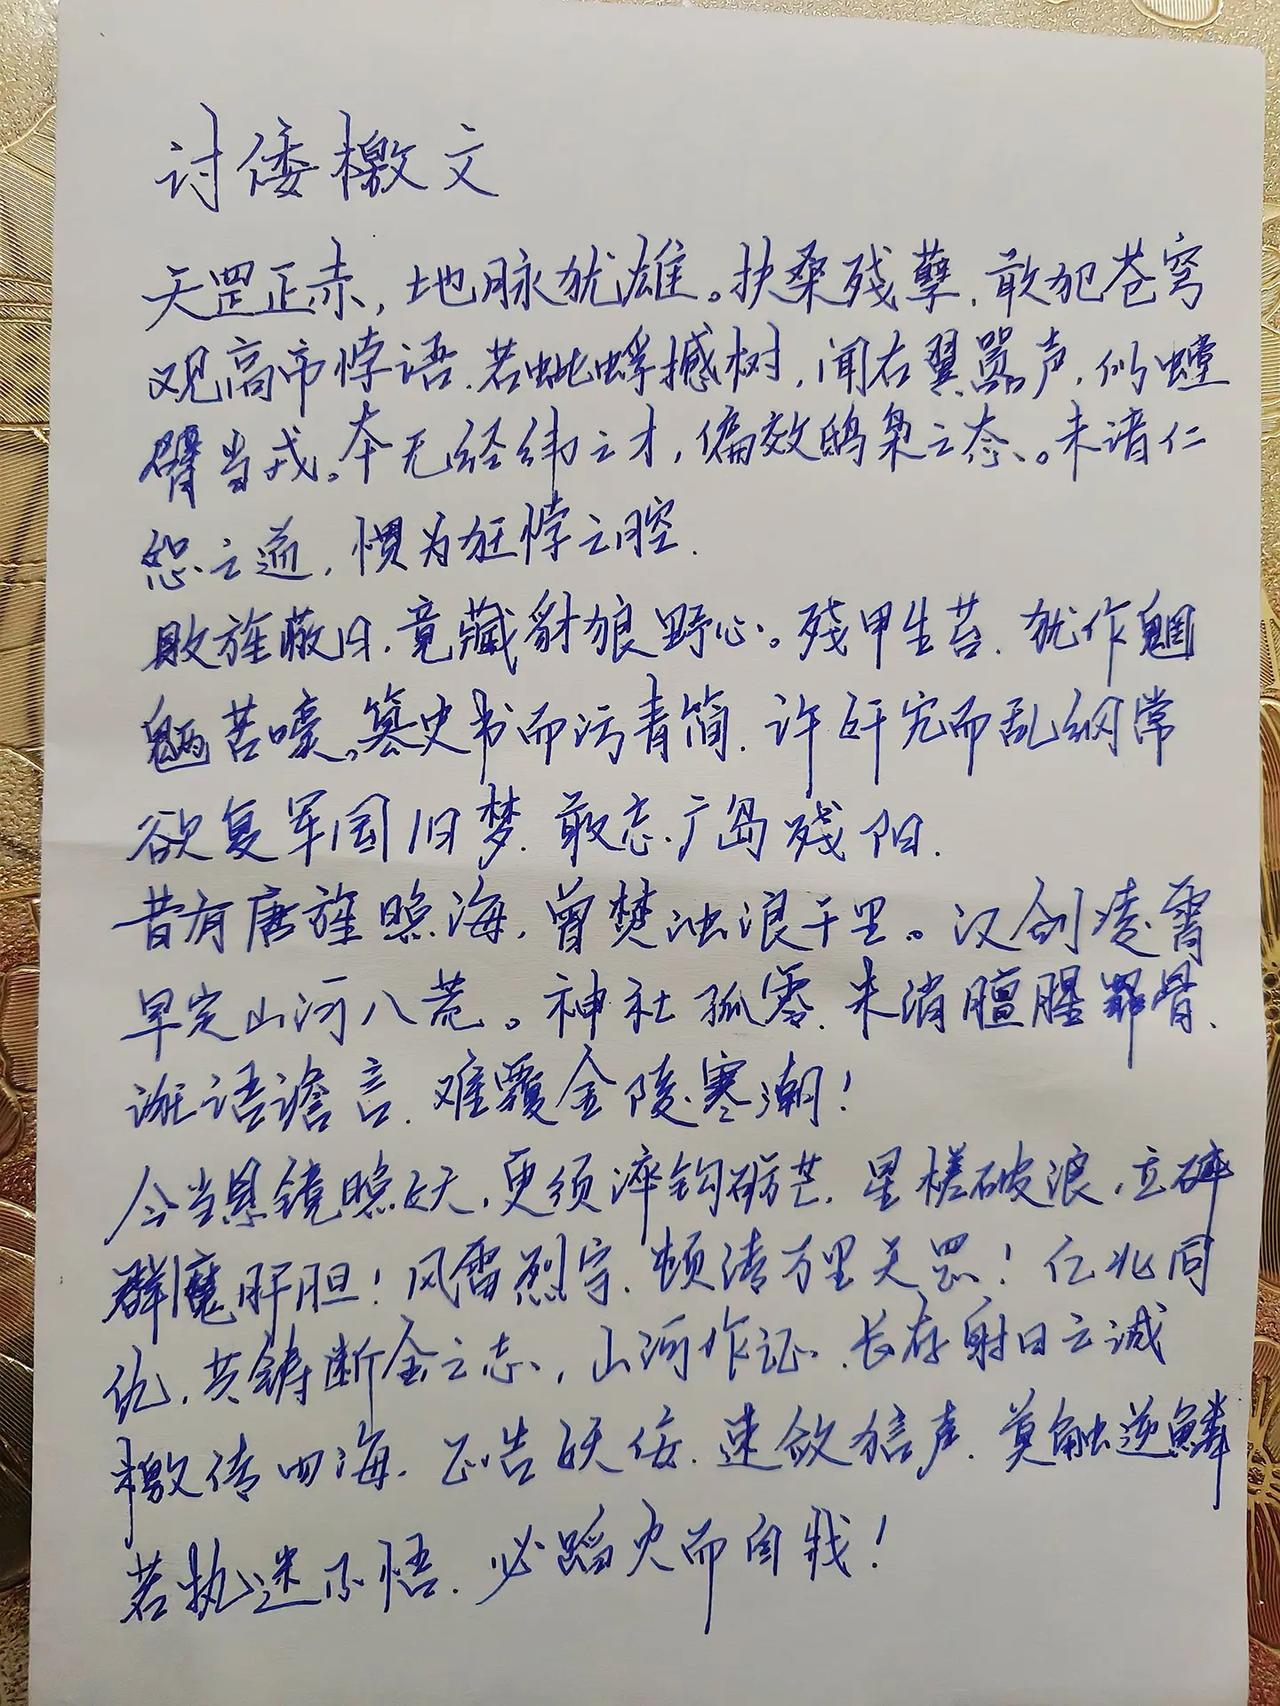 讨倭檄文
天罡正赤，地脉犹雄。扶桑残孽，敢犯苍穹
观高帝悖语.若蚍蜉撼树，闻右翼嚣声，似螳
臂当戎。本无经纬之才，偏效鸱枭之态。未谙仁
恕之道，惯为狂悖之腔.
敗旌蔽日，竟藏豺狼野心。残甲生苔.犹作魍
魉苦嚎。篡史书而污青简.许奸宄而乱纲常
欲复军国旧梦.敢忘广岛残阳.
昔有唐旌照海，曾焚浊浪千里。汉剑凌霄
早定山河八荒。神社孤零.未消膻腥罪骨.
诳语谵言.难覆金陵寒潮！
今当悬镜照妖，更须淬钩砺芒.星槎破浪，立碎
群魔肝胆！风雷烈宇.顿清万里天罡！亿兆同
仇，共铸断金之志，山河作证.长存射日之诚
檄传四海.正告妖倭.速敛狺声.莫触逆鳞
若执迷不悟.必蹈火而自戕！